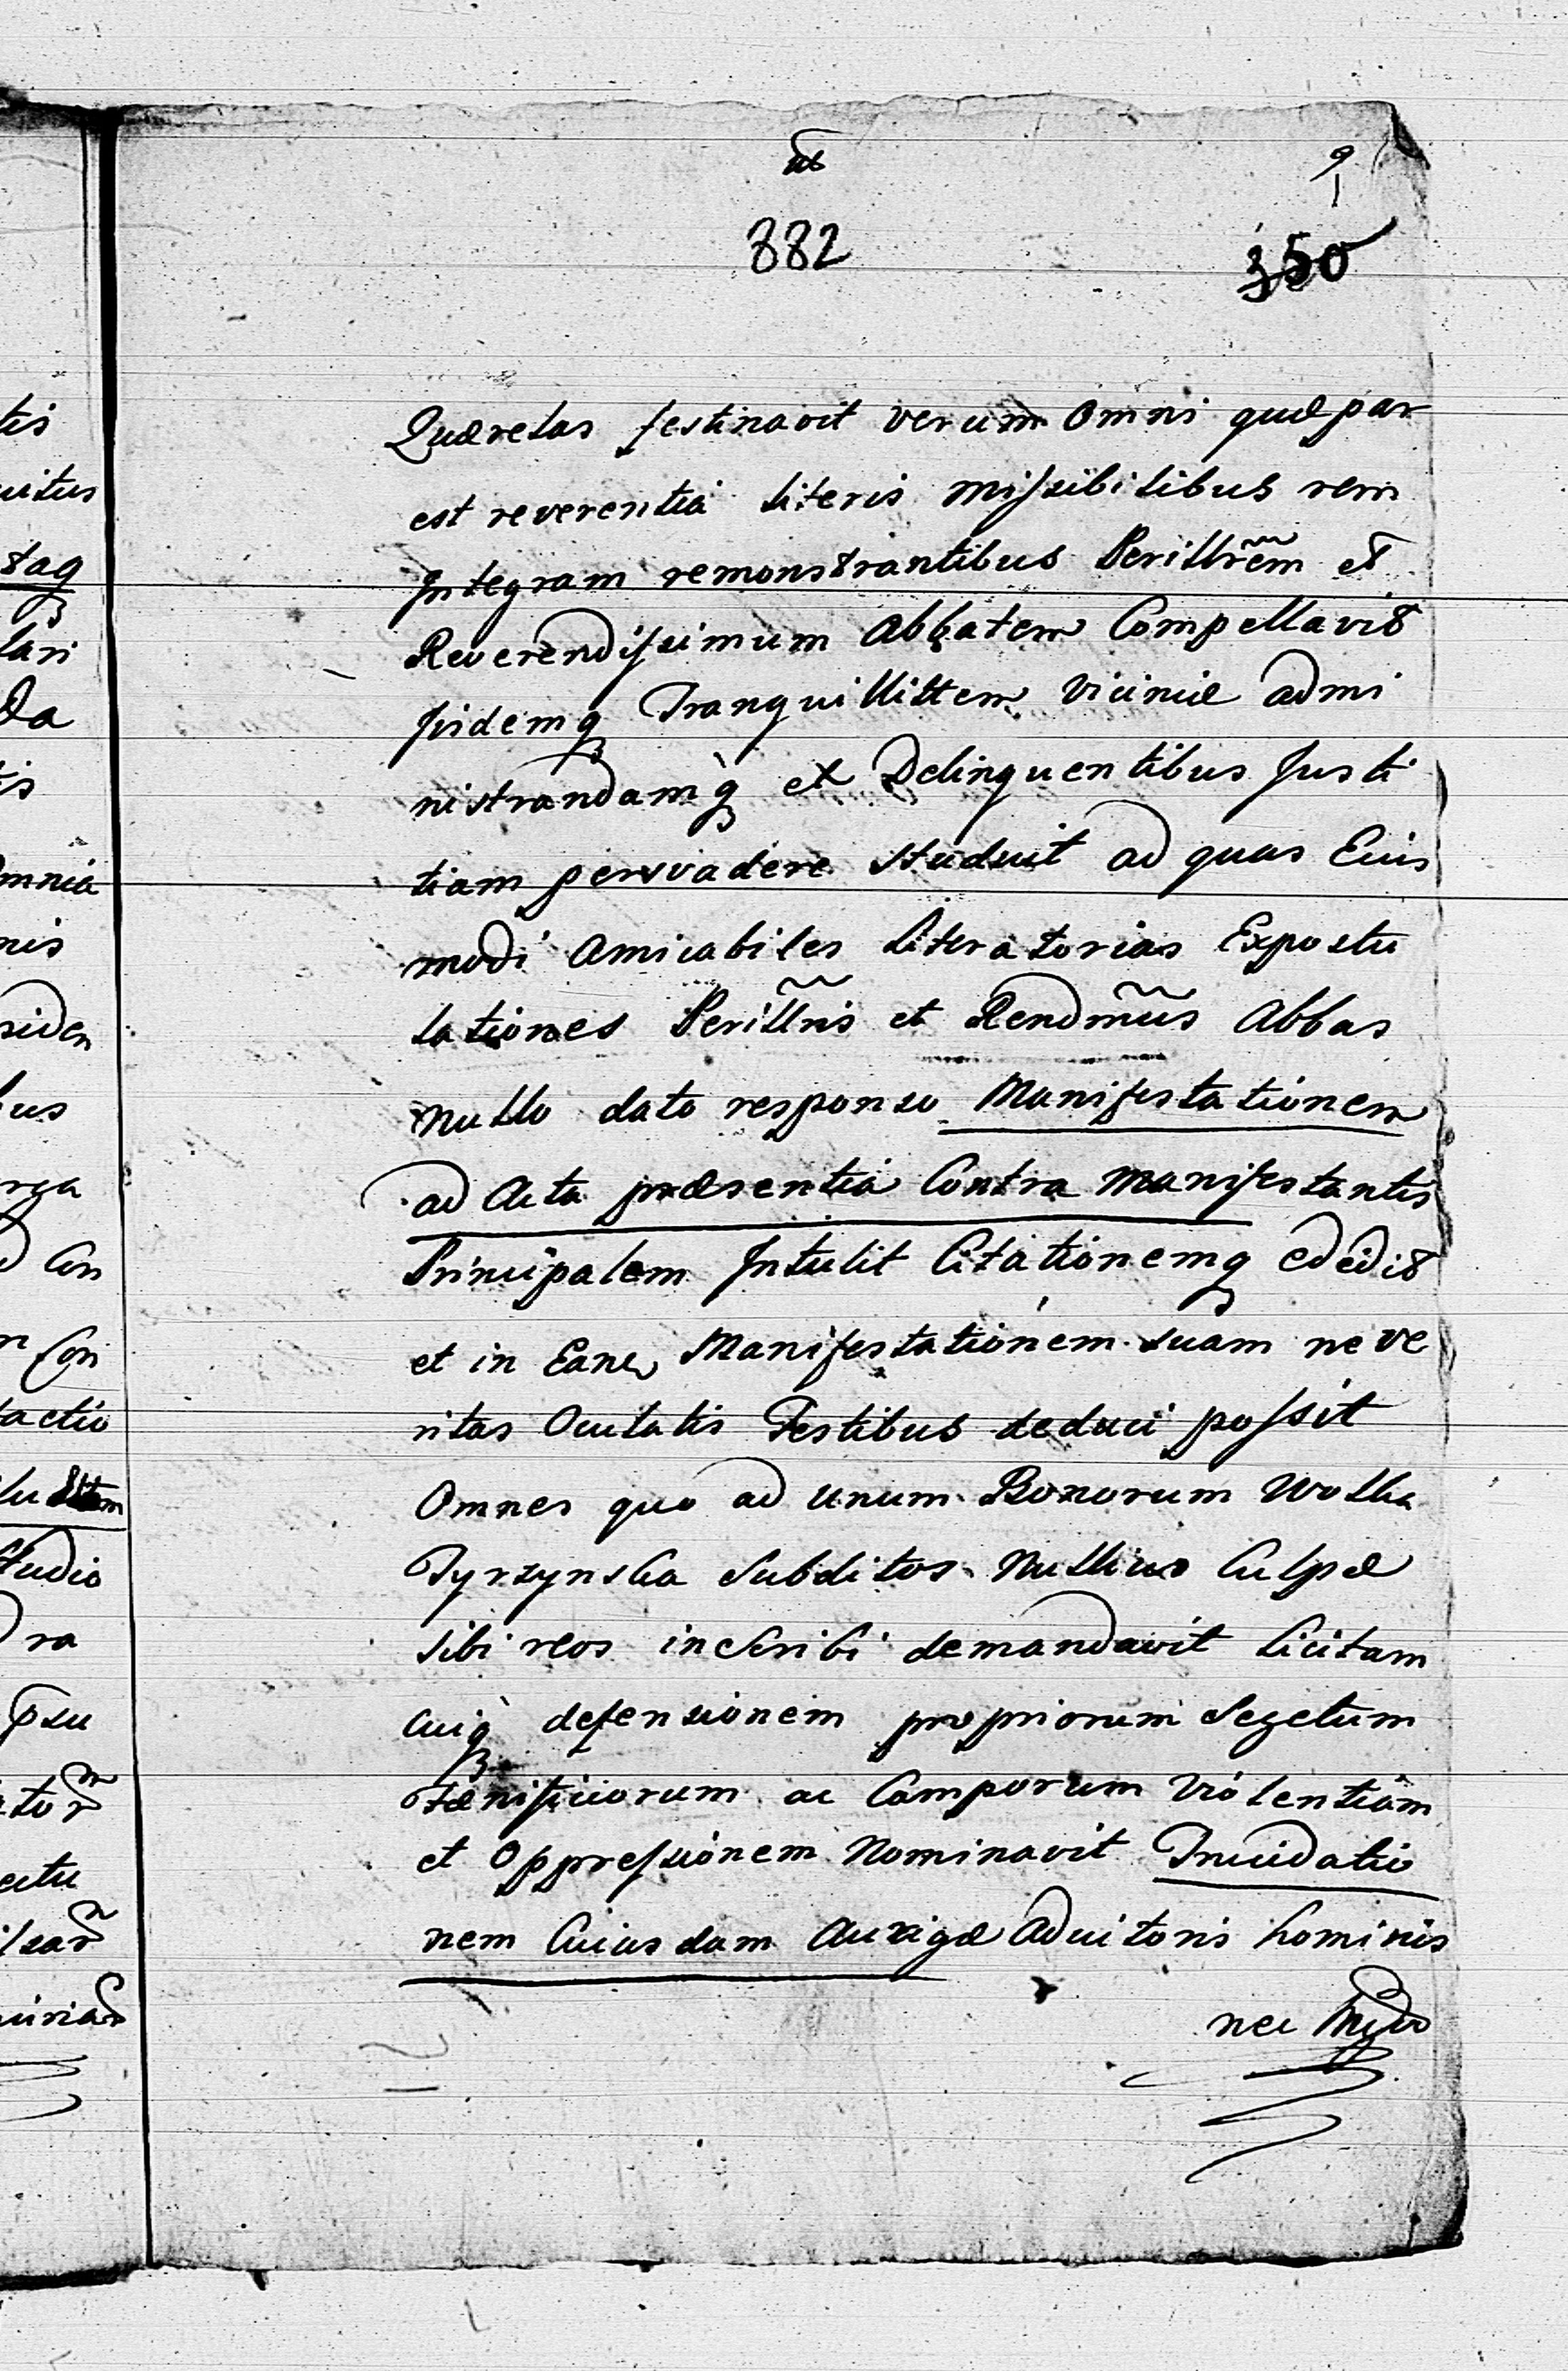 882
350
Quærelas festinavit verum Omni quæ par
est reverentia Literis Missibilibus rem
Integram remonstrantibus Perillr̃em et
Reverendissimum Abbatem Compellavit
fidemq Tranquillittem Viciniæ admi
nistrandamq et Delinquentibus Justi
tiam persvadere studuit ad quas Eius
modi Amicabiles Literatorias Expostu
lationes Perillris et Rendmus Abbas
nullo dato responso Manifestationem
ad Acta præsentia Contra Manifestantis
Principalem Intulit Citationemq edidit
et in Eane Manifestationem suam ne ve
ritas Oculatis Testibus deduci possit
Omnes quo ad unum Bonorum Wolka
Tyrzynska Subditos Nullius Culpæ
sibi reos inscribi demandavit Licitam
cuiq defensionem propriorum Segetum
Fænisiciorum ac Camporum Violentiam
et Oppressionem Nominavit Trucidatio
nem Cuiusdam Aurigæ Aduitoris hominis
nec
tis
uitus
lari
da
is
mnia
nis
siden
bus
rga
Con
Con
tactio
Studio
ra
psu
ectu